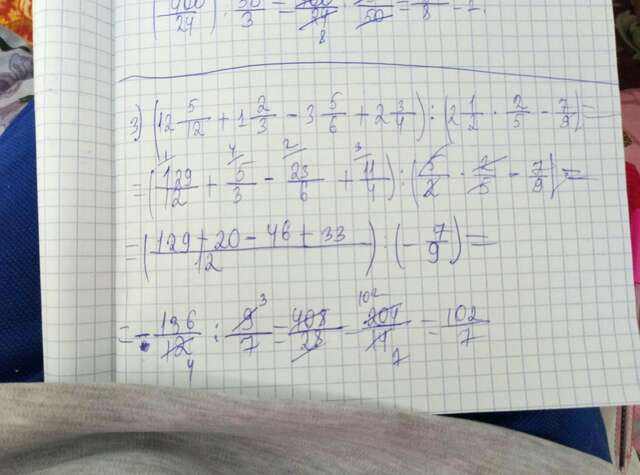 3) (12 5/12 + 1 2/3 - 3 5/6 + 2 3/4) : (2 1/2 · 2/5 - 7/9) =
= (129/12 + 5/3 - 23/6 + 11/4) : (5/2 · 2/5 - 7/9) =
= (129 + 20 - 46 + 33 / 12) : (- 7/9) =
= - 136/12 : 9/7 = 408/28 = 204/14 = 102/7